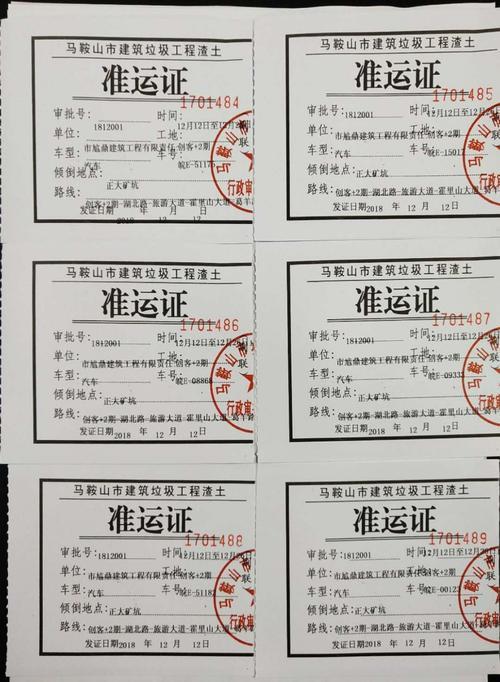 马鞍山市建筑垃圾工程渣土
准运证
1701484
审批号: 1812001 时间: 12月12日至12月
单位: 市旭鼎建筑工程有限责任 工地: 创客+2期
车型: 汽车 车号: 皖E-5117
倾倒地点: 正大矿坑
路线: 创客+2期-湖北路-旅游大道-霍里山大道-葛羊
发证日期 2018 12 12
马鞍山市建筑垃圾工程渣土
准运证
1701485
审批号: 1812001 时间: 12月12日至12月
单位: 市旭鼎建筑工程有限责任 工地: 创客+2期
车型: 汽车 车号: 皖E-1501
倾倒地点: 正大矿坑
路线: 创客+2期-湖北路-旅游大道-霍里山大道-葛
发证日期 2018 年 12 月 12日
马鞍山市
联
行政审
马鞍山市建筑垃圾工程渣土
准运证
1701486
审批号: 1812001 时间: 12月12日至12月
单位: 市旭鼎建筑工程有限责任 工地: 创客+2期
车型: 汽车 车号: 皖E-0886
倾倒地点: 正大矿坑
路线: 创客+2期-湖北路-旅游大道-霍里山大道-葛羊
发证日期 2018 年 12 月 12日
马鞍山市建筑垃圾工程渣土
准运证
1701487
审批号: 1812001 时间: 12月12日至12月
单位: 市旭鼎建筑工程有限责任 工地: 创客+2期
车型: 汽车 车号: 皖E-0933
倾倒地点: 正大矿坑
路线: 创客+2期-湖北路-旅游大道-霍里山大道-葛
发证日期 2018 年 12 月 12日
马鞍山市
联
行政审
马鞍山市建筑垃圾工程渣土
准运证
1701488
审批号: 1812001 时间: 12月12日至12月
单位: 市旭鼎建筑工程有限责任 工地: 创客+2期
车型: 汽车 车号: 皖E-5118
倾倒地点: 正大矿坑
路线: 创客+2期-湖北路-旅游大道-霍里山大道-葛羊
发证日期 2018 年 12 月 12日
马鞍山市建筑垃圾工程渣土
准运证
1701489
审批号: 1812001 时间: 12月12日至12月
单位: 市旭鼎建筑工程有限责任 工地: 创客+2期
车型: 汽车 车号: 皖E-0012
倾倒地点: 正大矿坑
路线: 创客+2期-湖北路-旅游大道-霍里山大道-葛
发证日期 2018 年 12 月 12日
马鞍山市
联
行政审